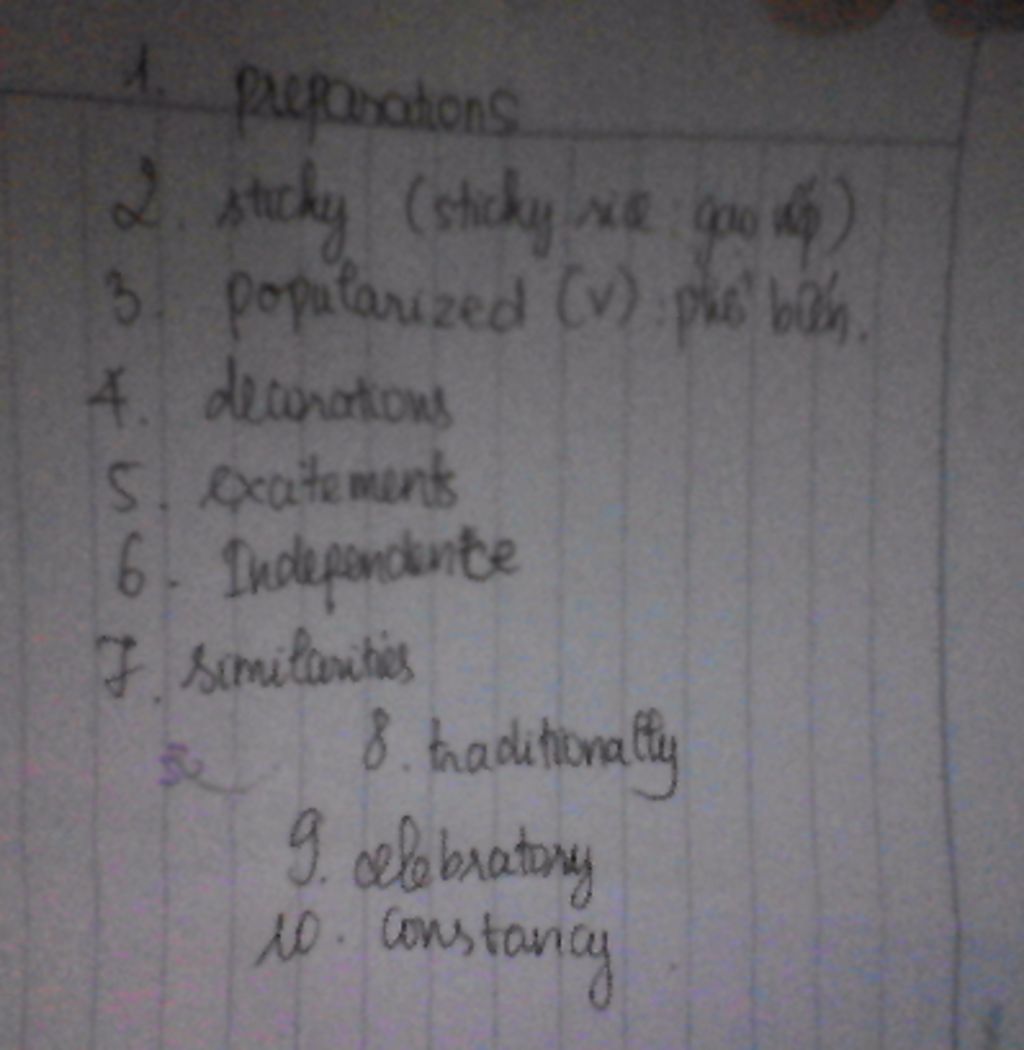 1. preparations
2. sticky (sticky rice: gạo nếp)
3. popularized (v): phổ biến.
4. decorations
5. excitements
6. Independence
7. similarities
8. traditionally
9. celebratory
10. constancy